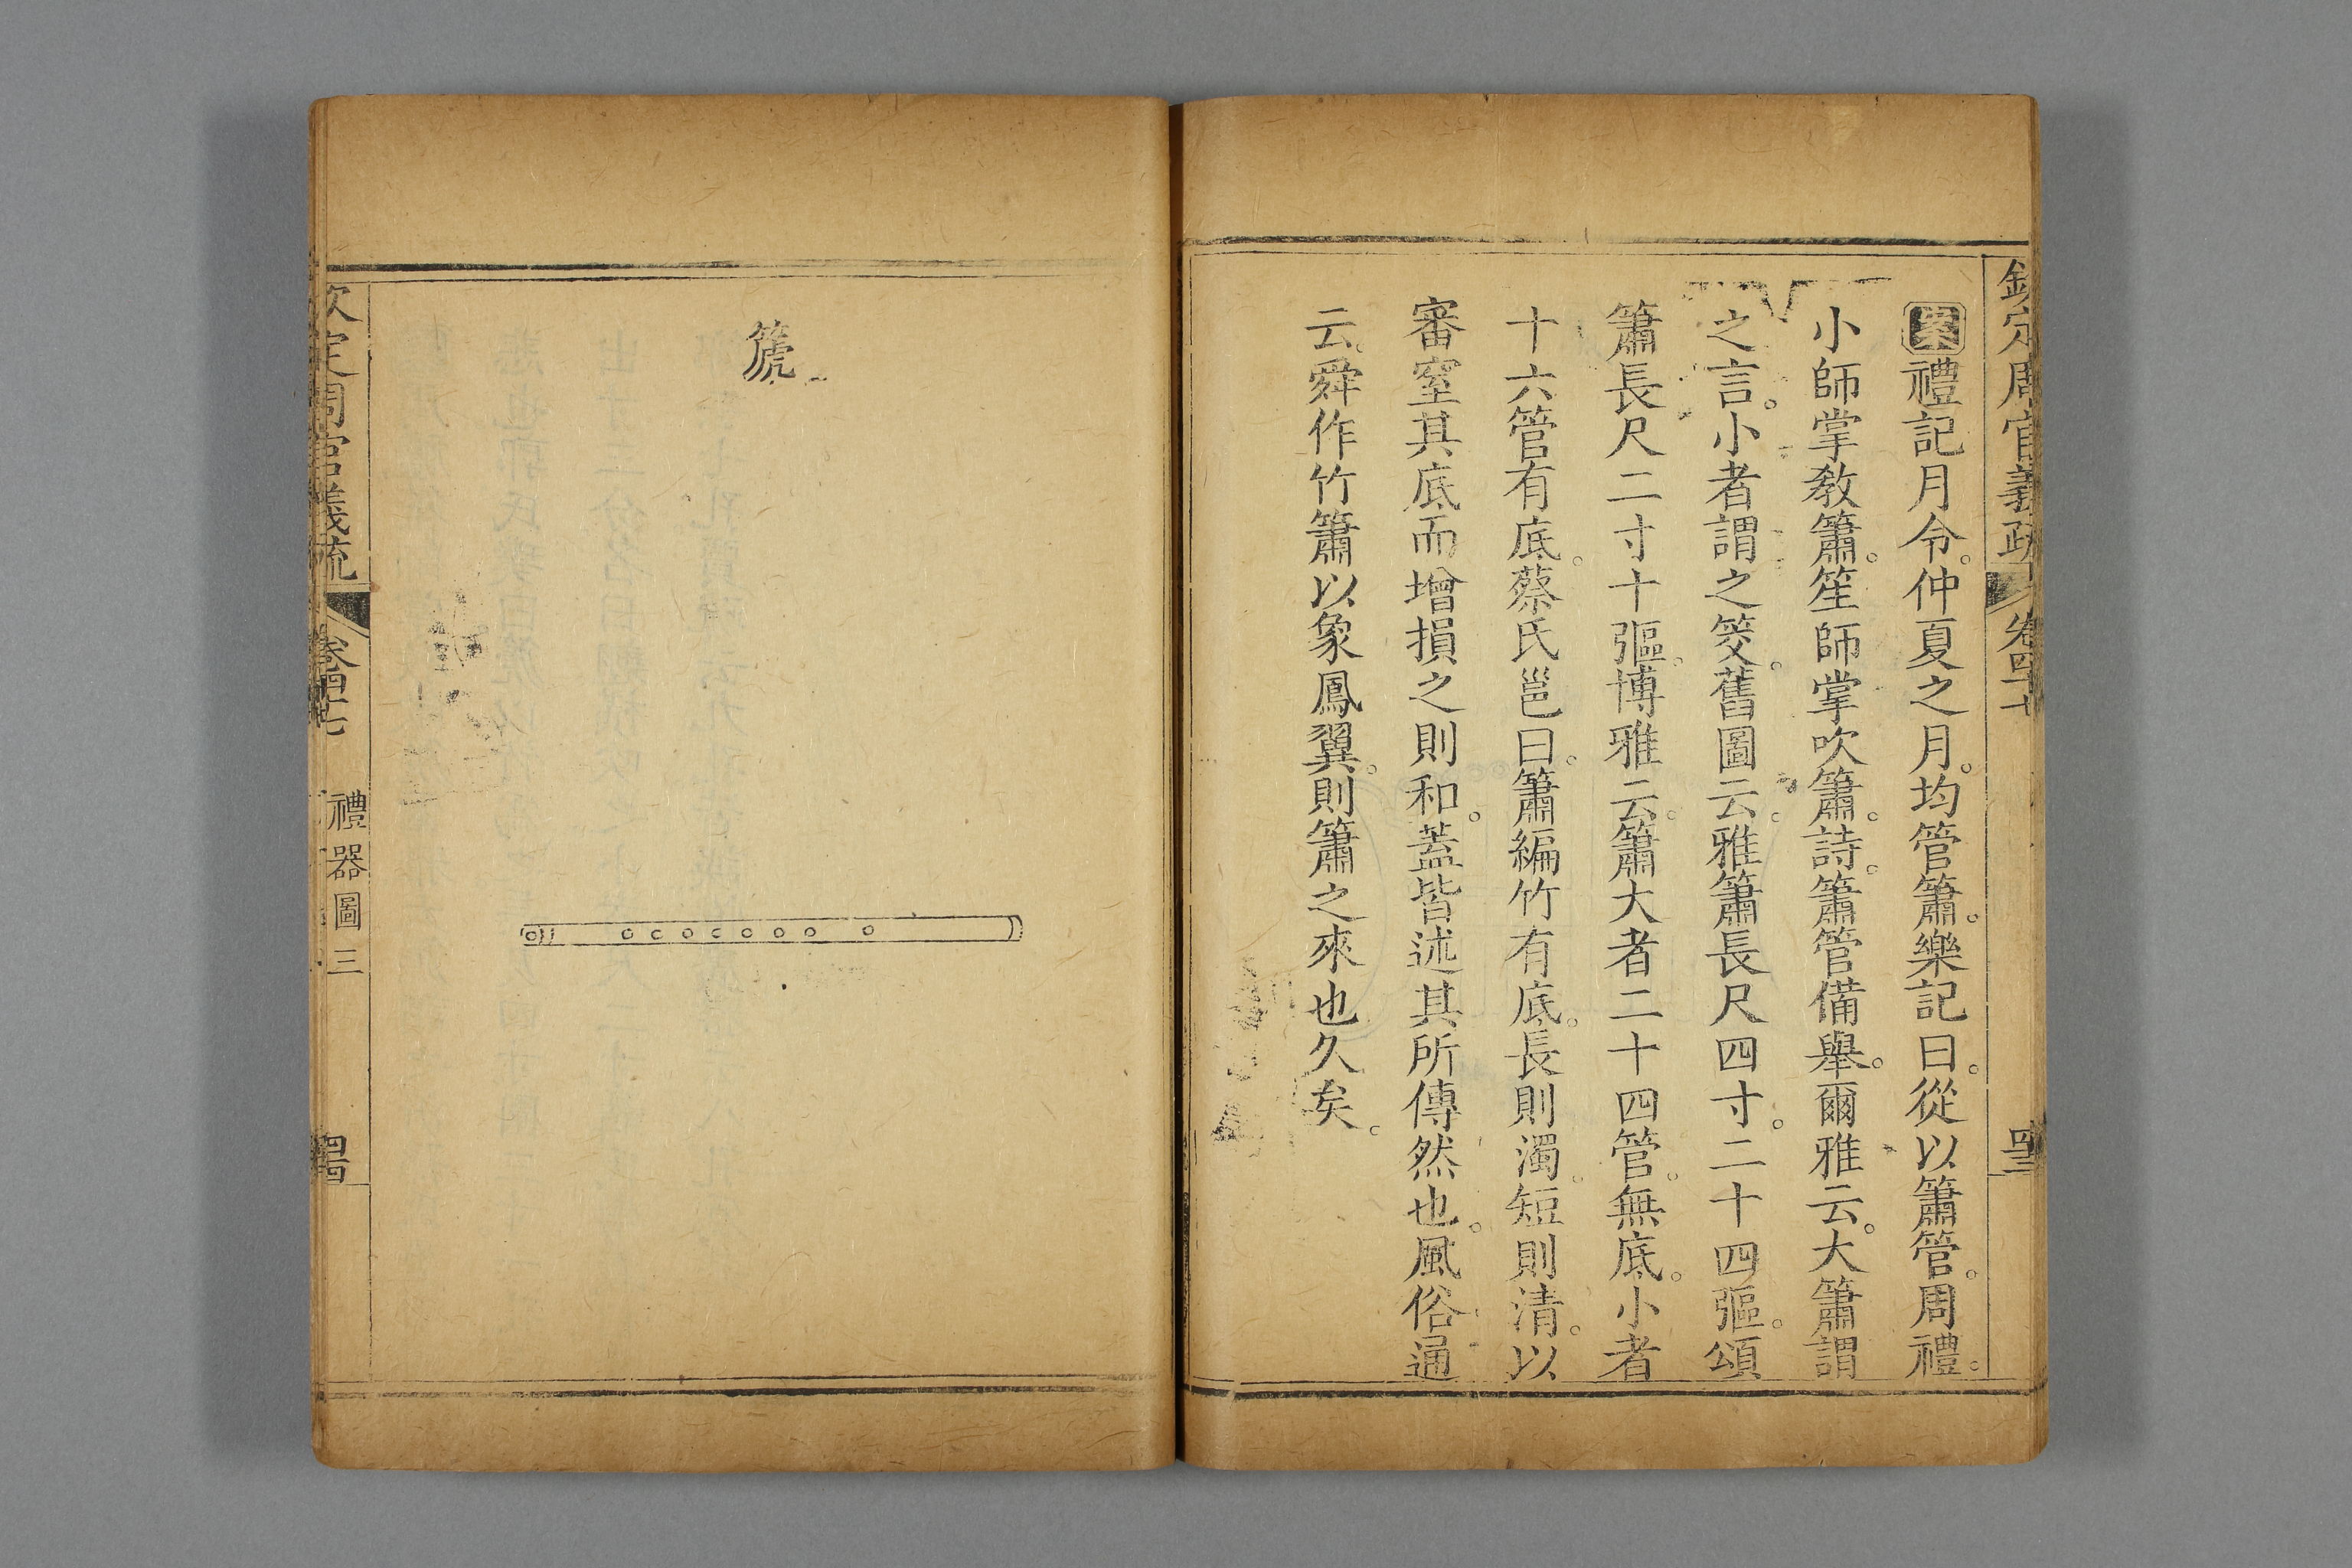 欽定周官義疏 卷四十七
案禮記月令。仲夏之月。均管簫。樂記曰。從以簫管。周禮。
小師掌教簫。笙師掌吹簫。詩。簫管備舉。爾雅云。大簫謂
之言。小者謂之筊。舊圖云。雅簫長尺四寸。二十四彄。頌
簫長尺二寸十彄。博雅云。簫大者二十四管。無底。小者
十六管有底。蔡氏邕曰。簫編竹有底。長則濁。短則清。以
審窒其底而增損之則和。蓋皆述其所傳然也。風俗通
云。舜作竹簫以象鳳翼。則簫之來也久矣。
篪
欽定周官義疏 卷四十七 禮器圖三